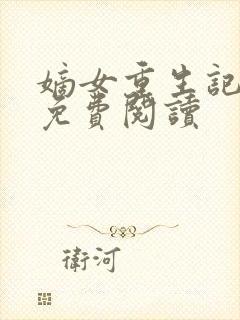 嫡女重生記
免費閱讀
衛河